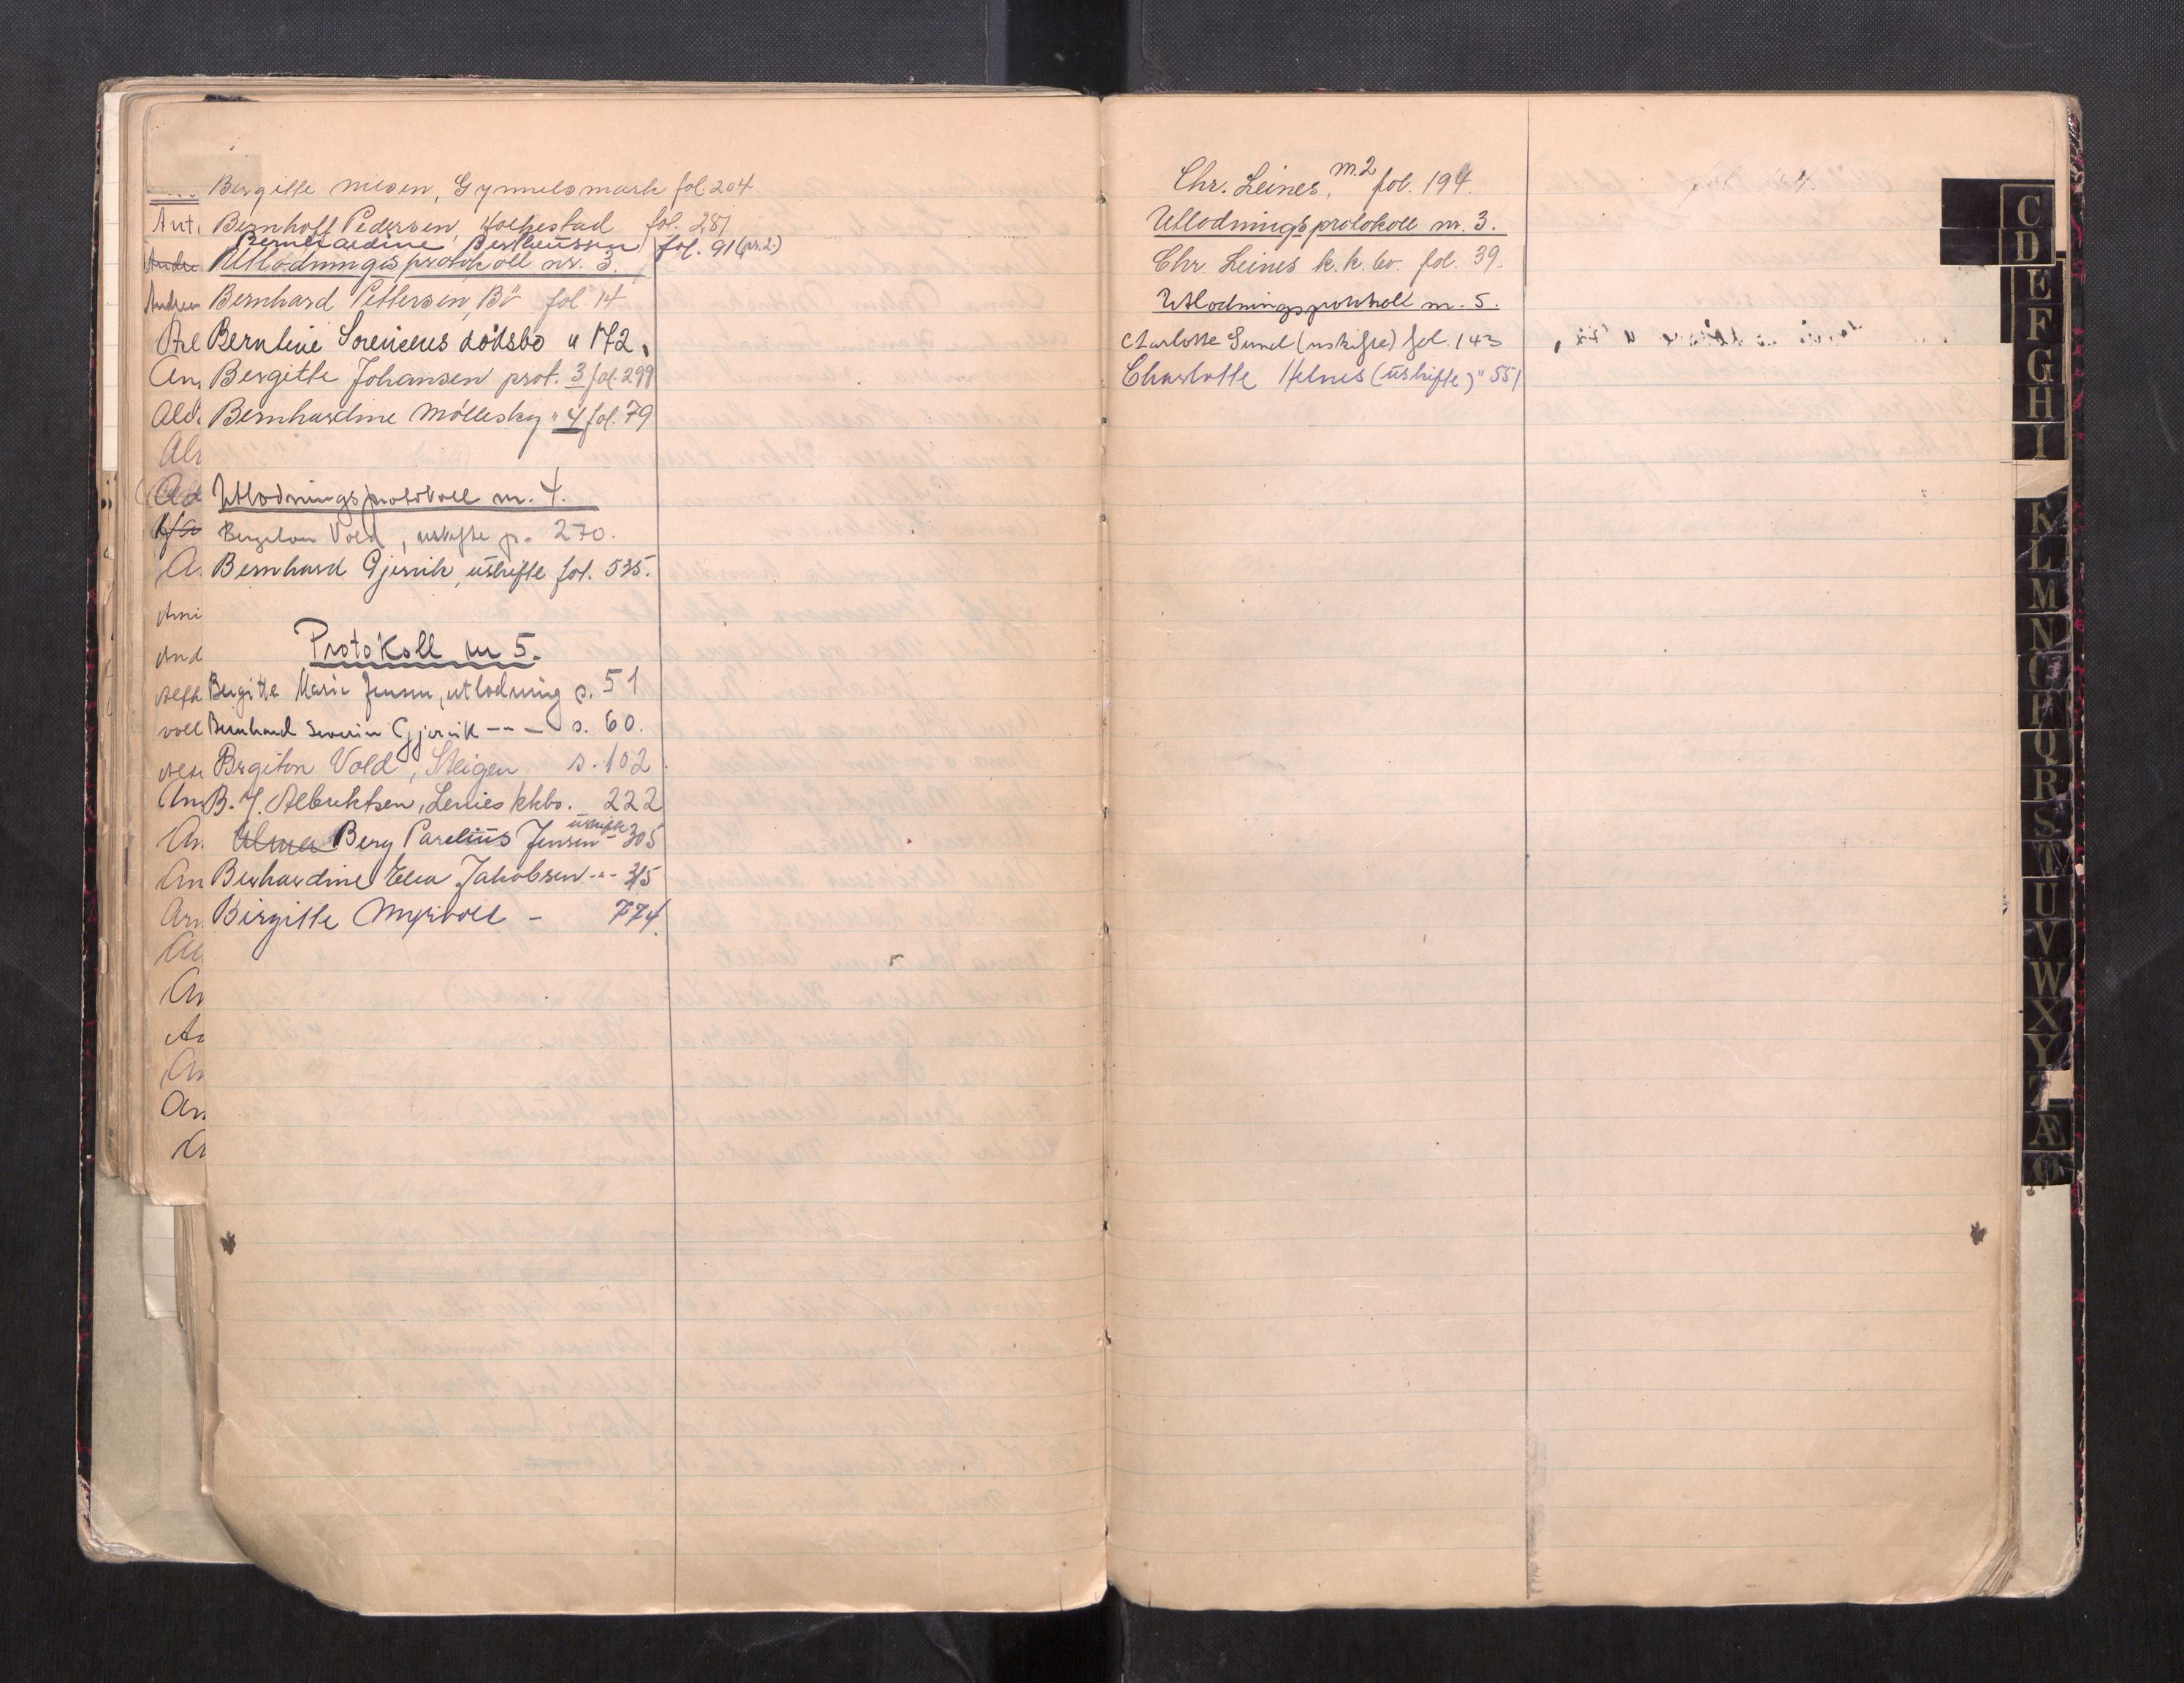 Bergitte Nilsen, Gymnelsmark fol. 204
Bernhoff Pedersen, Holkestad fol. 281
Bernhardine Bertheussen fol. 91 (pr. 2.)
Utlodningsprotokoll nr. 3.
Bernhard Pettersen, Bö fol. 14
Berntine Sorensens dödsbo " 172.
Bergitte Johansen prot. 3 fol. 299
Bernhardine Möllesky " 4 fol. 79
Utlodningsprotokoll nr. 4.
Vold, uskifte p. 270.
Bernhard Gjersvik, uskifte fol. 535.
Protokoll nr 5.
Bergitte Marie Jensen, utlodning s. 51
Bernhard Severin Gjersvik -"- s. 60.
Brgiton Vold, Steigen s. 102
B. J. Albriktsen, Leines kkbo. 222
Berg Parelius Jensen uskifte 305
Berhardine Elea Jakobsen -"- 315
Birgitte Myrvoll - 774.
Ant.
Andre
Andrea
Al
An
Ald.
Al
Ad
A.
Ami
And
voll
An
An.
An
Arn
Al
An
A
An
An
Chr. Leines, nr. 2 fol. 194.
Utlodningsprotokoll nr. 3.
Chr. Leines k.k. bo. fol. 39.
Utlodningsprotokoll nr. 5.
Charlotte Sund (uskifte) fol. 143
Charlotte Helnes (uskifte) " 551
C
D
E
F
G
H
I
K
L
M
N
O
P
Q
R
S
T
U
V
W
X
Y
Z
Æ
Ø